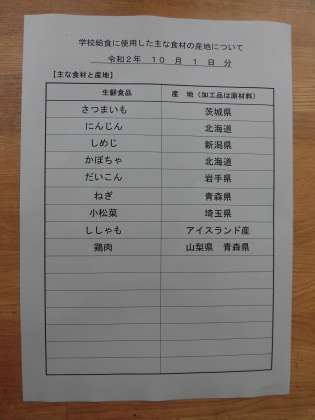 学校給食に使用した主な食材の産地について
令和2年 10 月 1 日 分
【主な食材と産地】
生鮮食品 産 地（加工品は原材料）
さつまいも 茨城県
にんじん 北海道
しめじ 新潟県
かぼちゃ 北海道
だいこん 岩手県
ねぎ 青森県
小松菜 埼玉県
ししゃも アイスランド産
鶏肉 山梨県 青森県